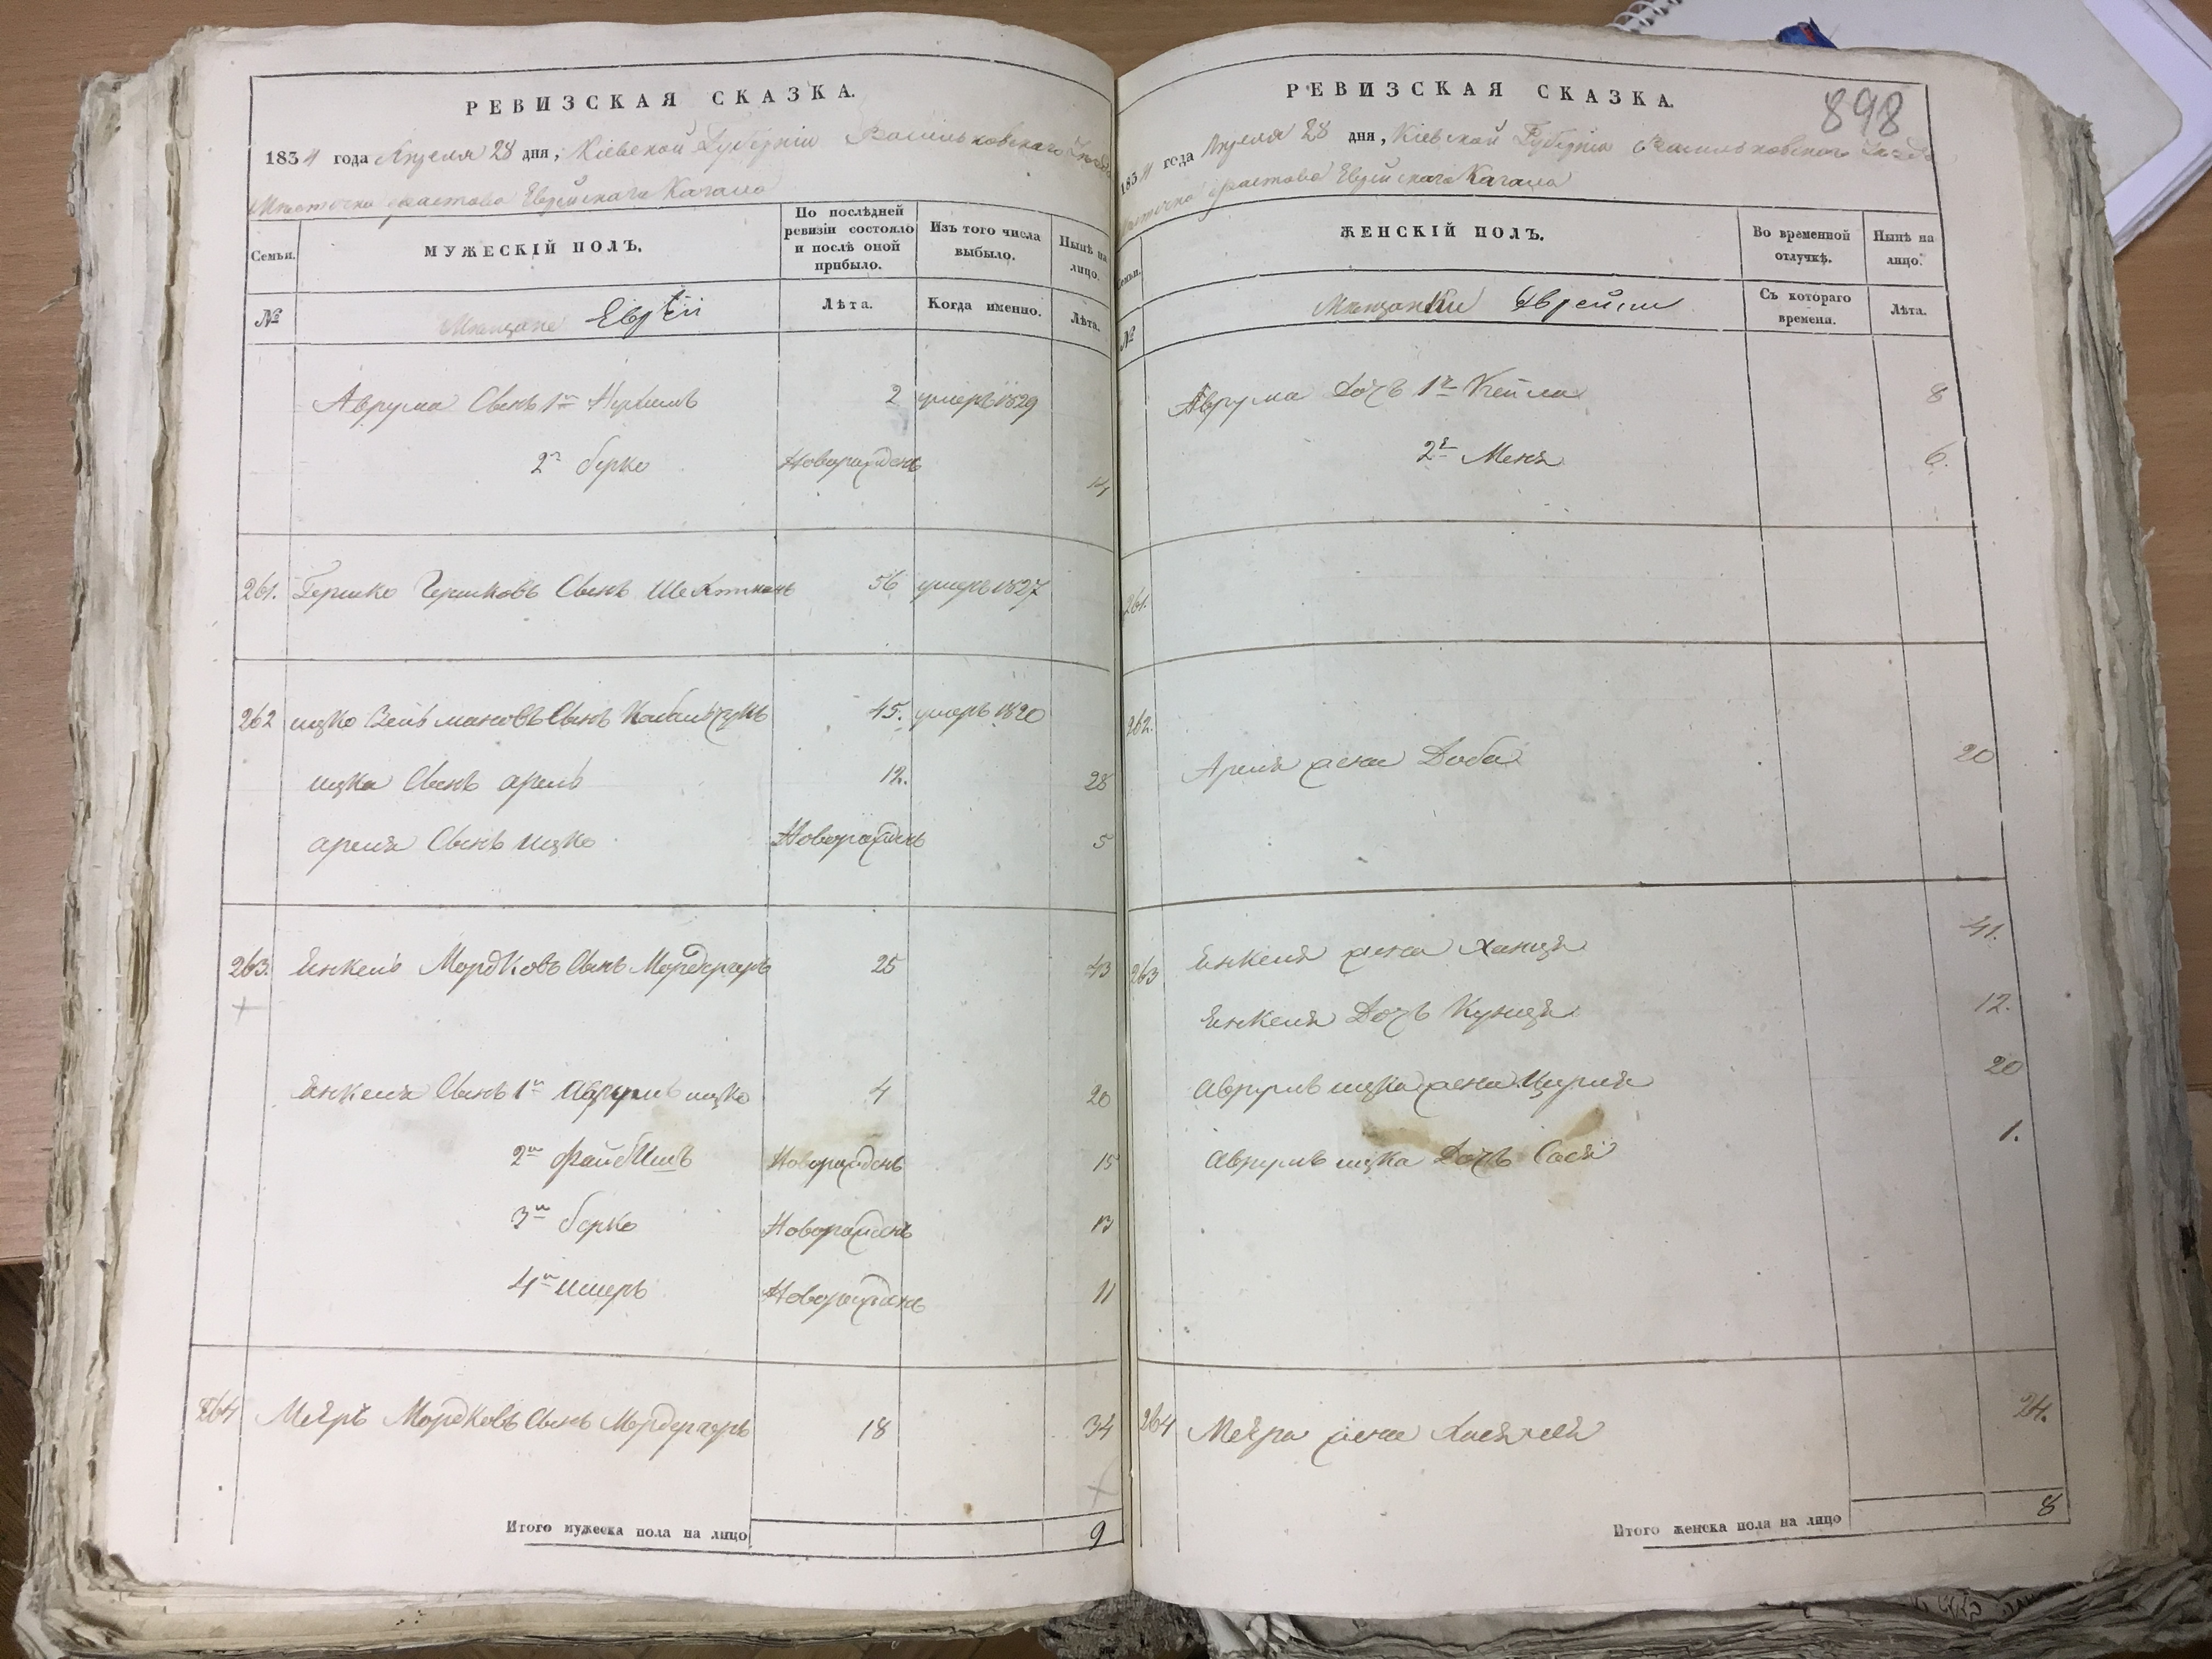 РЕВИЗСКАЯ СКАЗКА.
1834 года Апреля 28 дня, Кіевской Губерніи Васильковскаго Уезда
Местечка Фастова Еврейскаго Кагала
Семьи.
МУЖЕСКІЙ ПОЛЪ.
По послѣдней ревизіи состояло и послѣ оной прибыло.
Изъ того числа выбыло.
Нынѣ на лицо.
№
Мещане Евреи
Лѣта.
Когда именно.
Лѣта.
Аврума Сынъ 1й 2 умеръ 1829
2й Берко Новорожденъ 14
261. Гершко Гершковъ Сынъ 56 умеръ 1827
262 ицко Сынъ 45. умеръ 1820
ицка Сынъ арель 12. 28
ареля Сынъ ицко Новорожденъ 5
263. Янкель Мордковъ Сынъ 25 43
Янкеля Сынъ 1й Аврумъ ицко 4 20
2й Файбишъ Новорожденъ 15
3й берко Новорожденъ 13
4й Новорожденъ 11
264 Меяръ Мордковъ Сынъ 18 34
Итого мужеска пола на лицо 9
898
РЕВИЗСКАЯ СКАЗКА.
1834 года Апреля 28 дня, Кіевской Губерніи Васильковскаго Уезда
Местечка Фастова Еврейскаго Кагала
Семьи.
ЖЕНСКІЙ ПОЛЪ.
Во временной отлучкѣ.
Нынѣ на лицо.
№
Мещанки Еврейки
Съ котораго времени.
Лѣта.
Аврума Дочь 1я Кейла 8
2я Меня 6.
261.
262.
Ареля жена Доба 20
263 Янкеля жена Ханця 41.
Янкеля Дочъ Куня 12.
Аврумъ ицка жена Цирля 20
Аврумъ ицка Дочъ Сося 1.
264 Меяра жена 24.
Итого женска пола на лицо 8